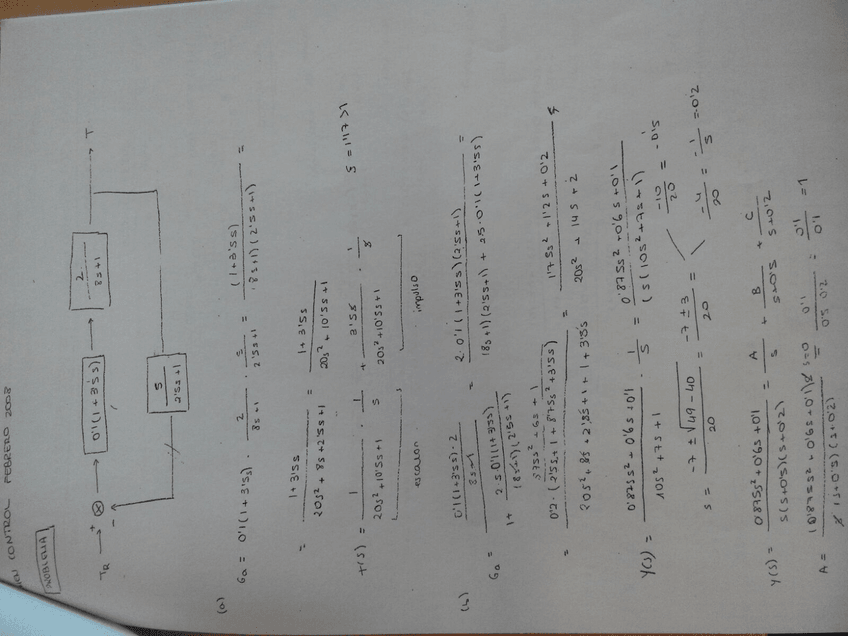 CONTROL FEBRERO 2008
PROBLEMA
TR + - 0'1(1+3'5s) 2 / 8s+1 T
5 / 2'5s+1
(a) Ga = 0'1(1+3'5s) · 2 / 8s+1 · 5 / 2'5s+1 = (1+3'5s) / (8s+1)(2'5s+1) =
= 1+3'5s / 20s²+8s+2'5s+1 = 1+3'5s / 20s²+10'5s+1
Y(s) = 1 / 20s²+10'5s+1 · 1 / s + 3'5s / 20s²+10'5s+1 · 1 / s
escalon impulso
(b) Ga = 0'1(1+3'5s)·2 / 8s+1 / 1 + 2·5·0'1(1+3'5s) / (8s+1)(2'5s+1) = 2·0'1(1+3'5s)(2'5s+1) / (8s+1)(2'5s+1) + 2·5·0'1(1+3'5s) =
= 0'2·(2'5s+1+8'75s²+3'5s) / 20s²+8s+2'5s+1+1+3'5s = 1'75s²+1'2s+0'2 / 20s²+14s+2
Y(s) = 0'875s²+0'6s+0'1 / 10s²+7s+1 · 1 / s = 0'875s²+0'6s+0'1 / (s(10s²+7s+1)
s = -7 ± √49-40 / 20 = -7±3 / 20 = -10 / 20 = -0'5
-4 / 20 = -1 / 5 = -0'2
Y(s) = 0'875s²+0'6s+0'1 / s(s+0'5)(s+0'2) = A / s + B / s+0'5 + C / s+0'2
A = (0'875s²+0'6s+0'1) s / s(s+0'5)(s+0'2) s=0 = 0'1 / 0'5·0'2 = 0'1 / 0'1 = 1